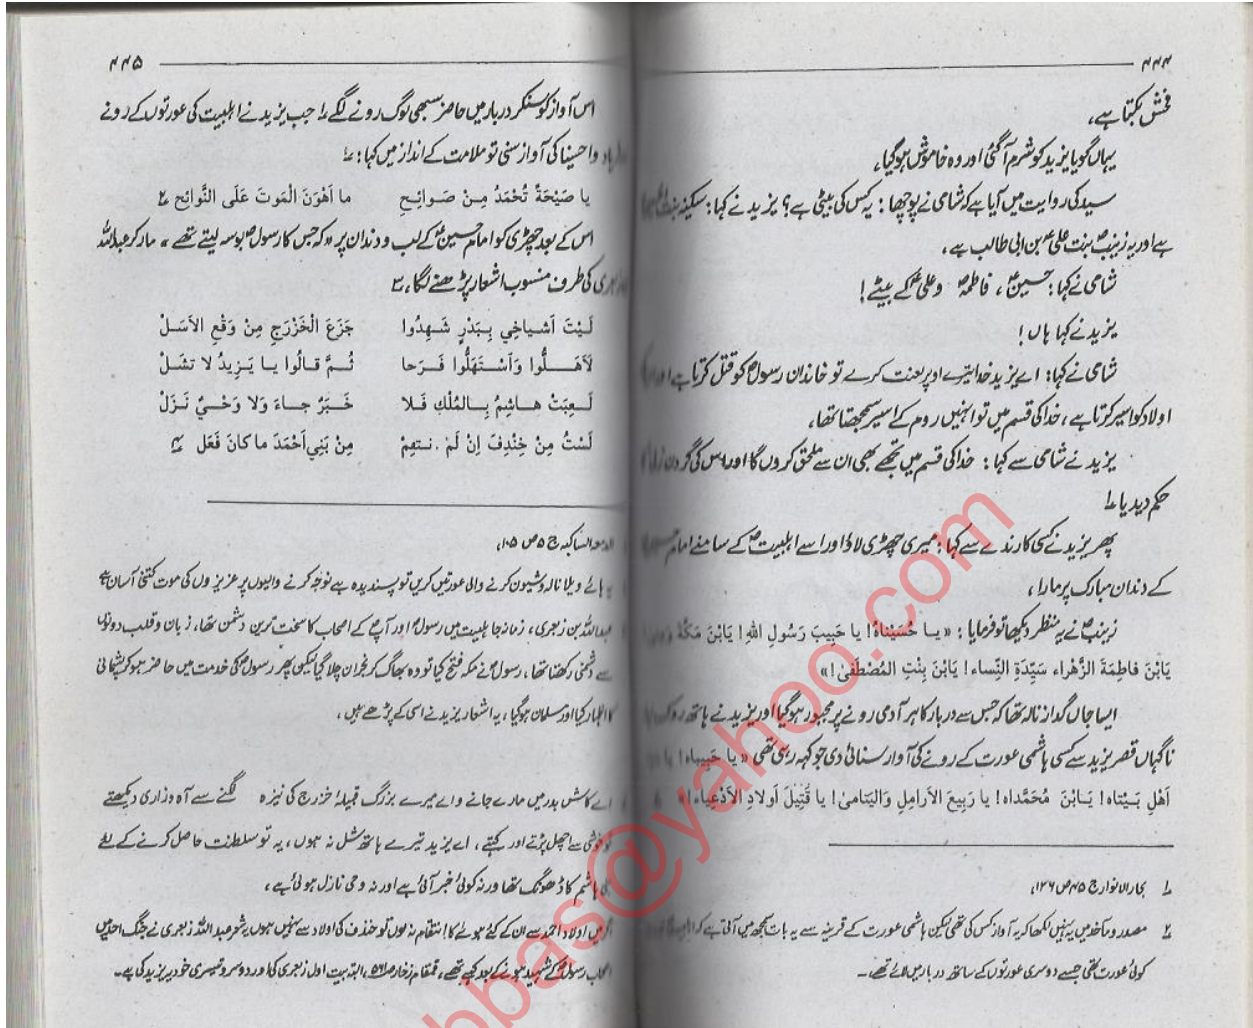 ۴۴۴
فحش بکتا ہے،
یہاں گویا یزید کو شرم آگئی اور وہ خاموش ہوگیا،
سید کی روایت میں آیا ہے کہ شامی نے پوچھا: یہ کس کی بیٹی ہے؟ یزید نے کہا: سکینہ بنت
ہے اور یہ زینبؑ بنت علیؑ بن ابی طالب ہے،
شامی نے کہا: حسینؑ، فاطمہؑ وعلیؑ کے بیٹے!
یزید نے کہا ہاں!
شامی نے کہا: اے یزید خدا تیرے اوپر لعنت کرے تو خاندان رسولؐ کو قتل کرتا ہے اور
اولاد کو اسیر کرتا ہے، خدا کی قسم میں تو انہیں روم کے اسیر سمجھتا تھا،
یزید نے شامی سے کہا: خدا کی قسم میں تجھے بھی ان سے ملحق کروں گا اور اس کی گردن
حکم دیدیا ۱؎
پھر یزید نے کسی کارندے سے کہا: میری چھڑی لاؤ اور اسے اہلبیتؑ کے سامنے امام
کے دندان مبارک پر مارا،
زینبؑ نے یہ منظر دیکھا تو فرمایا: «یا حُسَیْناهُ! یا حَبِیبَ رَسُولِ اللهِ! یَابْنَ مَکَّةَ
یَابْنَ فاطِمَةَ الزَّهْراء سَیِّدَةِ النِّساء! یَابْنَ بِنْتِ المُصْطَفیٰ!»
ایسا جاں گداز نالہ تھا کہ جس سے دربار کا ہر آدمی رونے پر مجبور ہوگیا اور یزید نے ہاتھ روک
ناگہاں قصر یزید سے کسی ہاشمی عورت کے رونے کی آواز سنائی دی جو کہہ رہی تھی «یا حَبِیباه! یا
اَهْلِ بَیْتاه! یَابْنَ مُحَمَّداه! یا رَبِیعَ الاَرامِلِ وَالیَتامیٰ! یا قَتِیلَ اَولادِ الاَدْعِیاء!»
۱؎ بحار الانوار ج ۴۵ ص ۱۳۶،
۲؎ مصدر و مآخذ میں یہ نہیں لکھا کہ یہ آواز کس کی تھی لیکن ہاشمی عورت کے قرینہ سے یہ بات سمجھ میں آتی ہے کہ
کوئی عورت تھی جسے دوسری عورتوں کے ساتھ دربار میں لائے تھے۔
۴۴۵
اس آواز کو سنکر دربار میں حاضر سبھی لوگ رونے لگے ۱؎ جب یزید نے اہلبیت کی عورتوں کے رونے
وا حسینا کی آواز سنی تو ملامت کے انداز میں کہا: ۲؎
یا صَیْحَةً تُحْمَدُ مِنْ صَوائِحِ ما اَهْوَنَ الْمَوتَ عَلَی النَّوائِحِ ۲؎
اس کے بعد چھڑی کو امام حسینؑ کے لب و دندان پر «کہ جس کا رسولؐ بوسہ لیتے تھے» مار کر عبداللہ
کی طرف منسوب اشعار پڑھنے لگا، ۳؎
لَیْتَ اَشْیاخِي بِبَدْرٍ شَهِدُوا جَزَعَ الْخَزْرَجِ مِنْ وَقْعِ الاَسَلْ
لاَهَلُّوا وَاَسْتَهَلُّوا فَرَحا ثُمَّ قالُوا یا یَزِیدُ لا تشَلْ
لَعِبَتْ هاشِمُ بِالمُلْكِ فَلا خَبَرٌ جاءَ وَلا وَحْيٌ نَزَلْ
لَسْتُ مِنْ خِنْدِفَ اِنْ لَمْ نتقِمْ مِنْ بَنِي اَحْمَدَ ما کانَ فَعَل ۴؎
الدمعہ الساکبہ ج ۵ ص ۱۰۵،
ہائے ویلا نالہ و شیون کرنے والی عورتیں کریں تو پسندیدہ ہے نوحہ کرنے والیوں پر عزیزوں کی موت کتنی آسان ہے
عبداللہ بن زبعری، زمانہ جاہلیت میں رسولؐ اور آپؐ کے اصحاب کا سخت ترین دشمن تھا، زبان و قلب دونوں
سے دشمنی رکھتا تھا، رسولؐ نے مکہ فتح کیا تو وہ بھاگ کر نجران چلا گیا لیکن پھر رسولؐ کی خدمت میں حاضر ہو کر پشیمانی
کا اظہار کیا اور مسلمان ہوگیا، یہ اشعار یزید نے اسی کے پڑھے ہیں،
اے کاش بدر میں مارے جانے والے میرے بزرگ قبیلۂ خزرج کی نیزہ لگنے سے آہ و زاری دیکھتے
تو خوشی سے اچھل پڑتے اور کہتے، اے یزید تیرے ہاتھ شل نہ ہوں، یہ تو سلطنت حاصل کرنے کے لئے
بنی ہاشم کا ڈھونگ تھا ورنہ کوئی خبر آئی ہے اور نہ وحی نازل ہوئی ہے،
اگر میں اولاد احمد سے ان کے کئے ہوئے کا انتقام نہ لوں تو خندف کی اولاد سے نہیں ہوں یہ شعر عبداللہ زبعری نے جنگ احد میں
اصحاب رسولؐ کے شہید ہونے کے بعد کہے تھے، قمقام زخار ص ۵۶۱، البتہ بیت اول زبعری کی اور دوسری و تیسری خود یزید کی ہے۔
bbas@yahoo.com